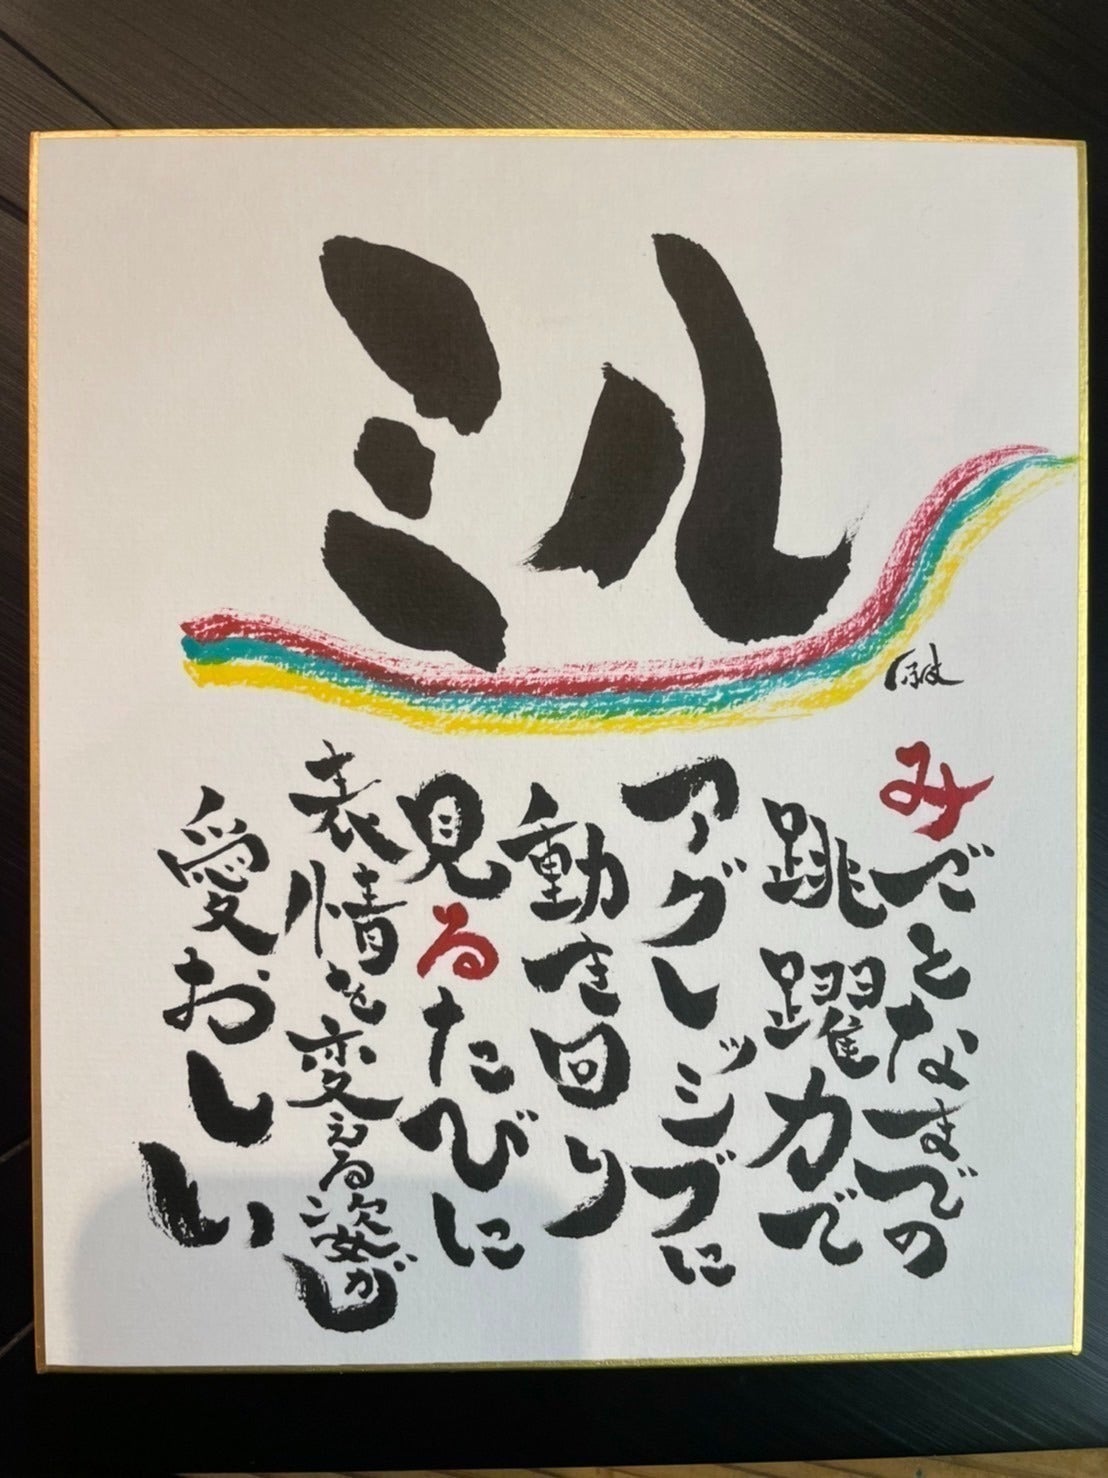 ミル
みごとなまでの
跳躍力で
アグレッシブに
動き回り
見るたびに
表情を変える姿が
愛おしい